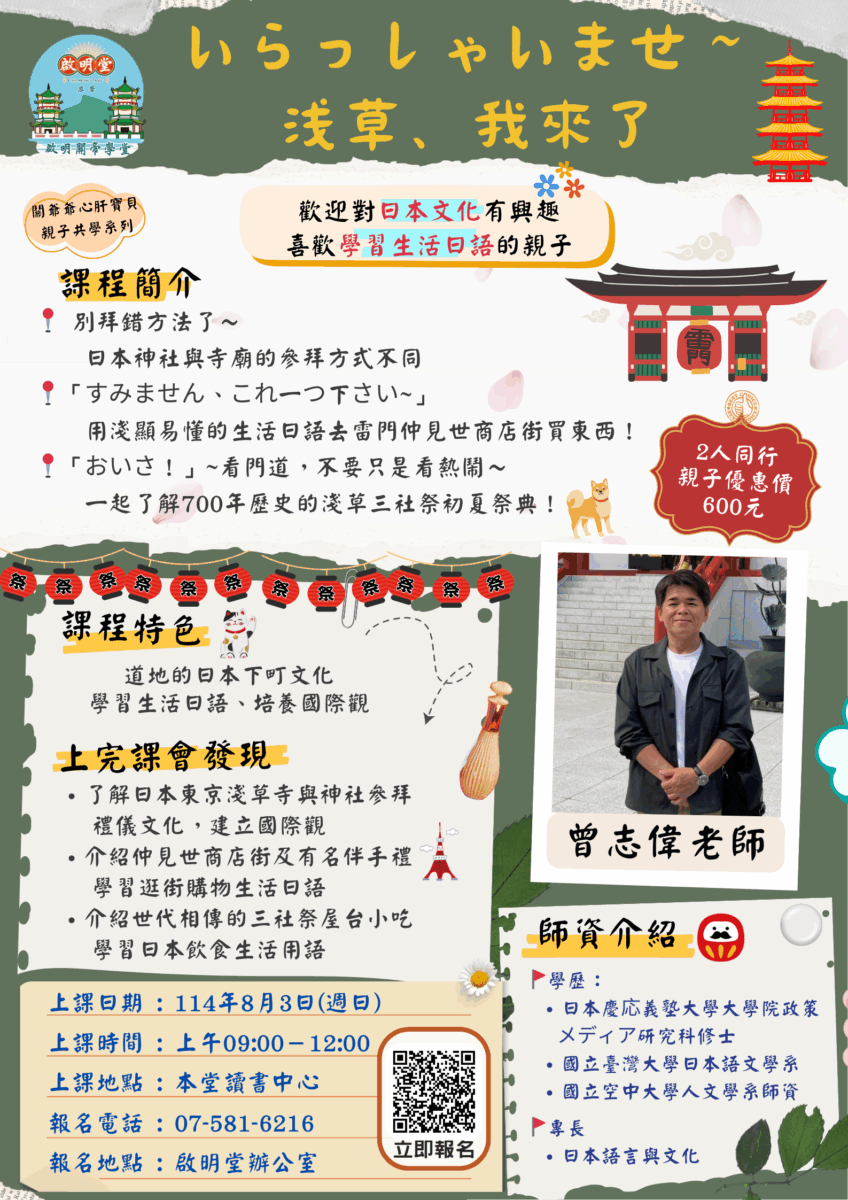 いらっしゃいませ~
浅草、我來了
啟明堂
啟明關帝學堂
關爺爺心肝寶貝
親子共學系列
歡迎對日本文化有興趣
喜歡學習生活日語的親子
課程簡介
別拜錯方法了～
日本神社與寺廟的參拜方式不同
「すみません、これ一つ下さい~」
用淺顯易懂的生活日語去雷門仲見世商店街買東西！
「おいさ！」~看門道，不要只是看熱鬧～
一起了解700年歷史的淺草三社祭初夏祭典！
雷門
2人同行
親子優惠價
600元
祭 祭 祭 祭 祭 祭 祭 祭 祭 祭 祭 祭
課程特色
道地的日本下町文化
學習生活日語、培養國際觀
上完課會發現
• 了解日本東京淺草寺與神社參拜
禮儀文化，建立國際觀
• 介紹仲見世商店街及有名伴手禮
學習逛街購物生活日語
• 介紹世代相傳的三社祭屋台小吃
學習日本飲食生活用語
曾志偉老師
師資介紹
學歷：
• 日本慶応義塾大學大學院政策
メディア研究科修士
• 國立臺灣大學日本語文學系
• 國立空中大學人文學系師資
專長
• 日本語言與文化
上課日期：114年8月3日(週日)
上課時間：上午09:00－12:00
上課地點：本堂讀書中心
報名電話：07-581-6216
報名地點：啟明堂辦公室
立即報名